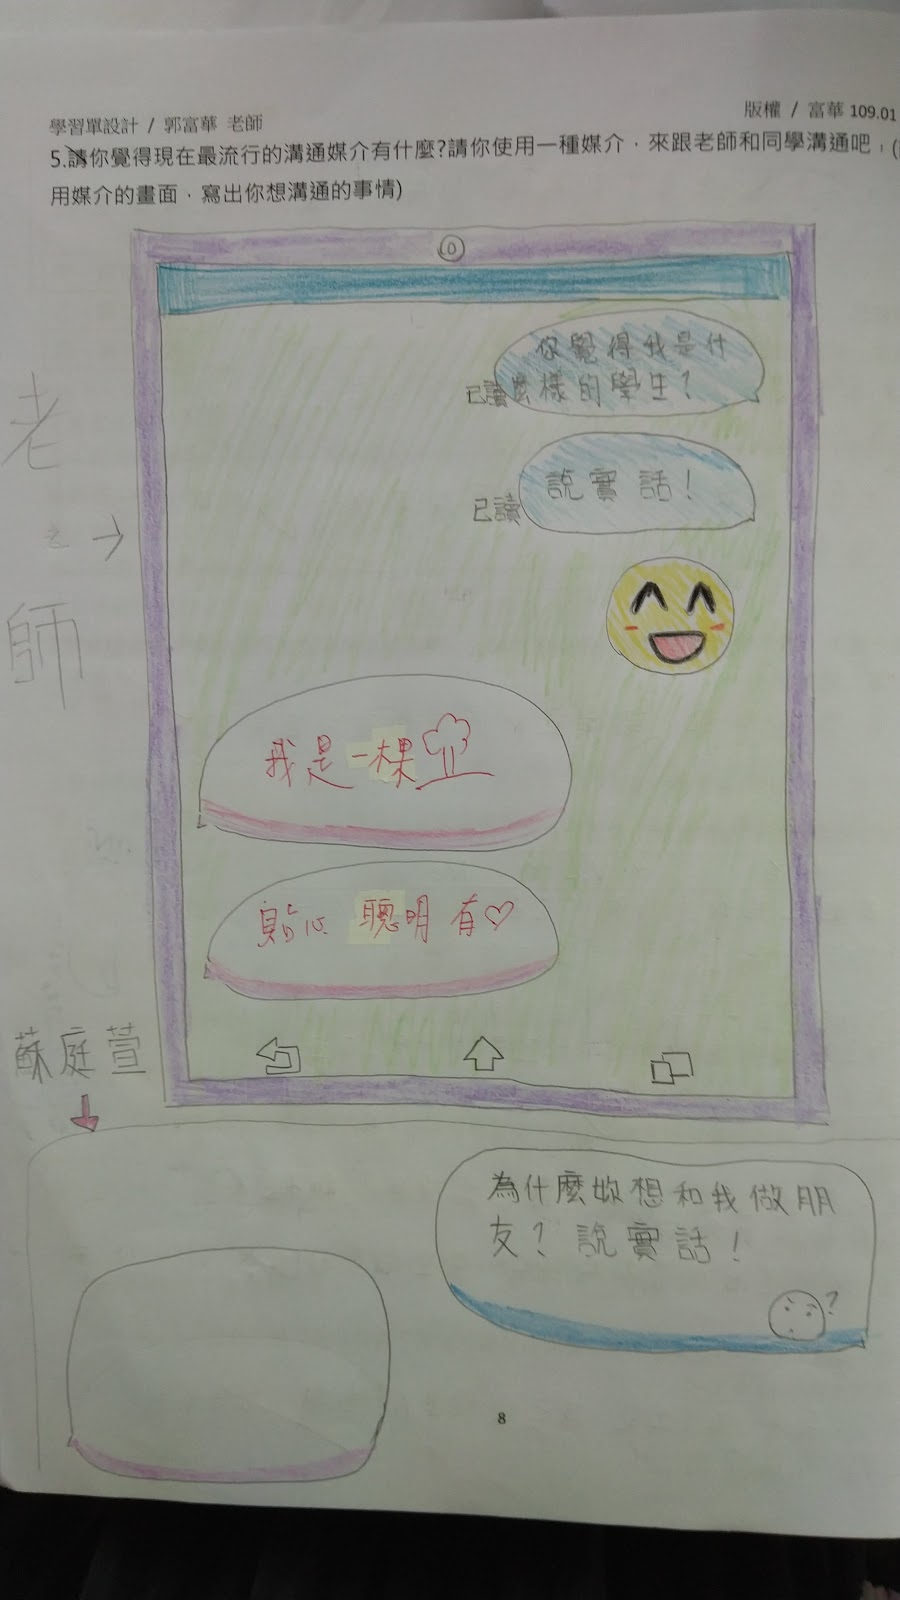 學習單設計 / 郭富華 老師
版權 / 富華 109.01
5.請你覺得現在最流行的溝通媒介有什麼?請你使用一種媒介，來跟老師和同學溝通吧，(
用媒介的畫面，寫出你想溝通的事情)
你覺得我是什
已讀麼樣的學生?
說實話!
已讀
老
師
我是一棵
貼心 聰明 有♡
蘇庭萱
為什麼妳想和我做朋
友?說實話!
?
8